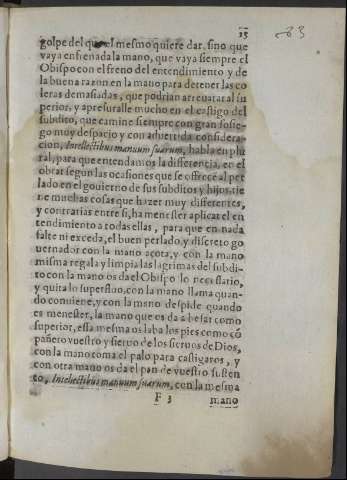 15 63
golpe del que el mesmo quiere dar, sino que
vaya enfrenada la mano, que vaya siempre el
Obispo con el freno del entendimiento y de
la buena razon en la mano para detener las co
leras demasiadas, que podrian arrebatar al su
perior, y apresuralle mucho en el castigo del
subdito, que camine siempre con gran sosie-
go muy de spacio y con aduertida considera
cion, Intellectibus manuum suarum, habla en plu
ral, para que entendamos la differencia, en el
obrar segun las ocasiones que se offrecē al per
lado en el gouierno de sus subditos y hijos, tie
ne muchas cosas que hazer muy differentes,
y contrarias entre si, ha menester aplicar el en
tendimiento a todas ellas, para que en nada
falte ni exceda, el buen perlado, y discreto go
uernador con la mano açota, y con la mano
misma regala y limpia las lagrimas del subdi-
to con la mano os da el Obispo lo necessario,
y quita lo superfluo, con la mano llama quan-
do conuiene, y con la mano despide quando
es menester, la mano que os da a besar como
superior, essa mesma os laba los pies como cō
pañero vuestro y sieruo de los sieruos de Dios,
con la mano toma el palo para castigaros, y
con otra mano os da el pan de vuestro susten
to, Intellectibus manuum suarum, con la mesma
F 3 mano